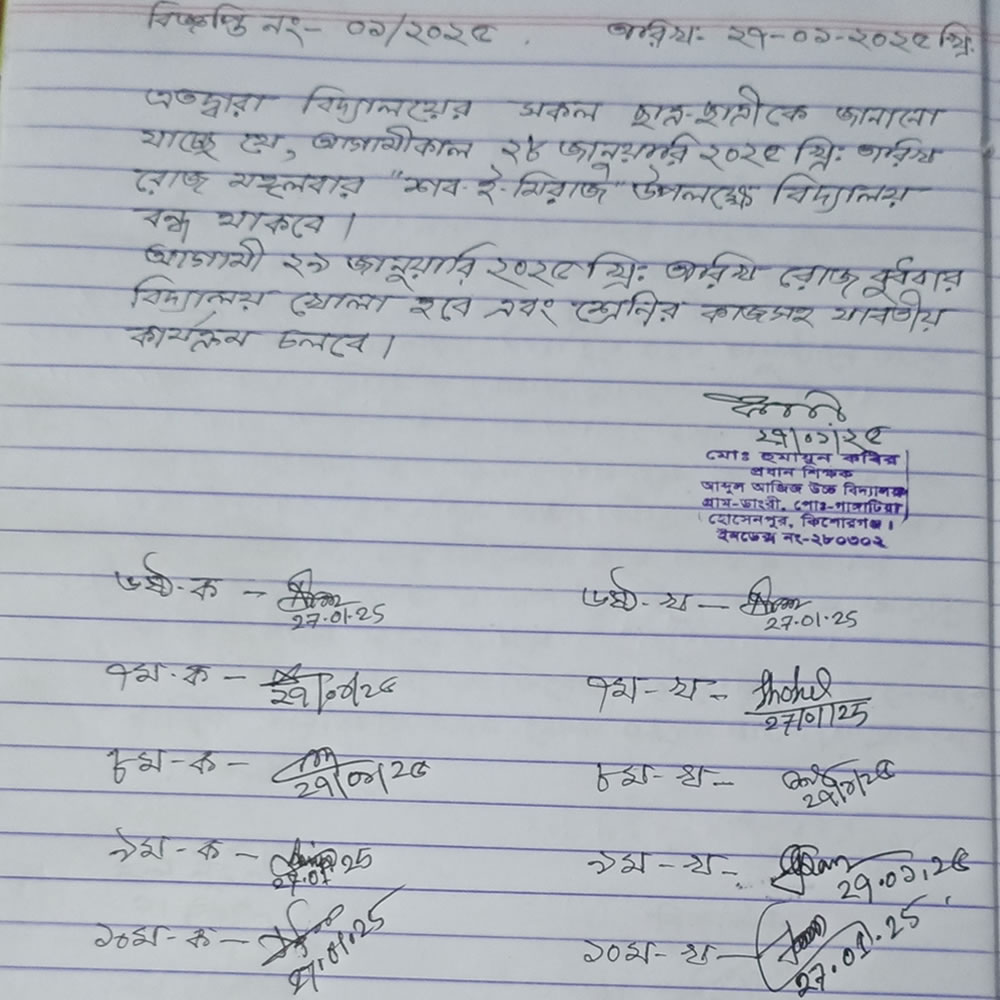 বিজ্ঞপ্তি নং- ০১/২০২৫. তারিখ: ২৭-০১-২০২৫ খ্রি.
এতদ্বারা বিদ্যালয়ের সকল ছাত্র-ছাত্রীকে জানানো
যাচ্ছে যে, আগামীকাল ২৮ জানুয়ারি ২০২৫ খ্রি: তারিখ
রোজ মঙ্গলবার "শব-ই-মিরাজ" উপলক্ষে বিদ্যালয়
বন্ধ থাকবে।
আগামী ২৯ জানুয়ারি ২০২৫ খ্রি: তারিখ রোজ বুধবার
বিদ্যালয় খোলা হবে এবং শ্রেনির কাজসহ যাবতীয়
কার্যক্রম চলবে।
২৭/০১/২৫
মোঃ হুমায়ুন কবির
প্রধান শিক্ষক
আব্দুল আজিজ উচ্চ বিদ্যালয়
গ্রাম-ডাংরী, পোঃ-গাঙ্গাটিয়া
হোসেনপুর, কিশোরগঞ্জ।
ইনডেক্স নং-২৮০৩০২
৬ষ্ঠ-ক - 27.01.25 ৬ষ্ঠ-খ - 27.01.25
৭ম-ক - ২৭/০১/২৫ ৭ম-খ - Shohel 27/01/25
৮ম-ক - ২৭/০১/২৫ ৮ম-খ - ২৭/১/২৫
৯ম-ক - 27.01.25 ৯ম-খ - ২৭.০১.২৫
১০ম-ক - 27.01.25 ১০ম-খ - 27.01.25